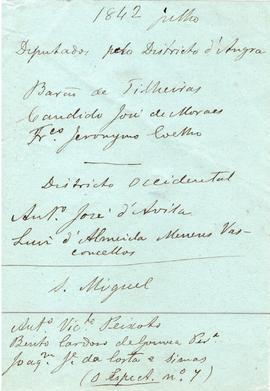 1842 julho
Deputados pelo Districto d'Angra
Barão de Tilheiras
Candido José de Moraes
Fr.co Jeronymo Coelho
Districto Occidental
Ant.o José d'Avila
Luiz d'Almeida Menezes Vas-
concellos
S. Miguel
Ant.o Vic.te Peixoto
Bento Cardoso de Gouvea Per.a
Joaq.m J.e da Costa e Simas
(O Espect. nº 7)